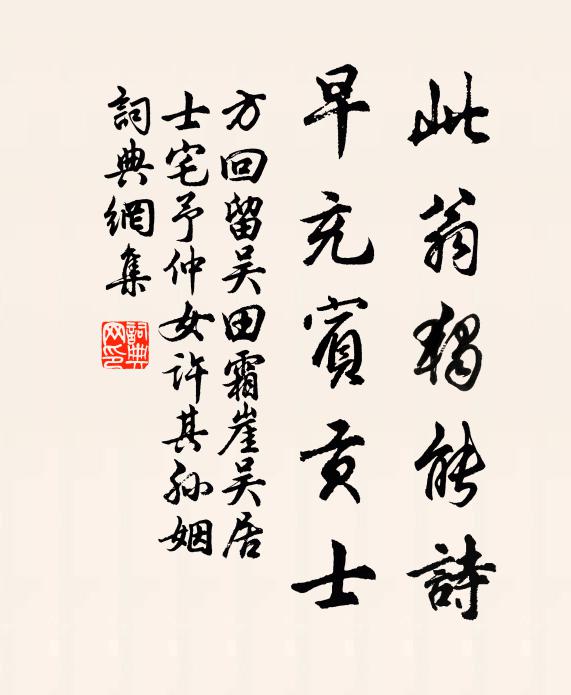 此翁獨能詩
早充賓貢士
方回留吴田霜崖吴居
士宅予仲女許其孫姻
詞典網集
詞典網印